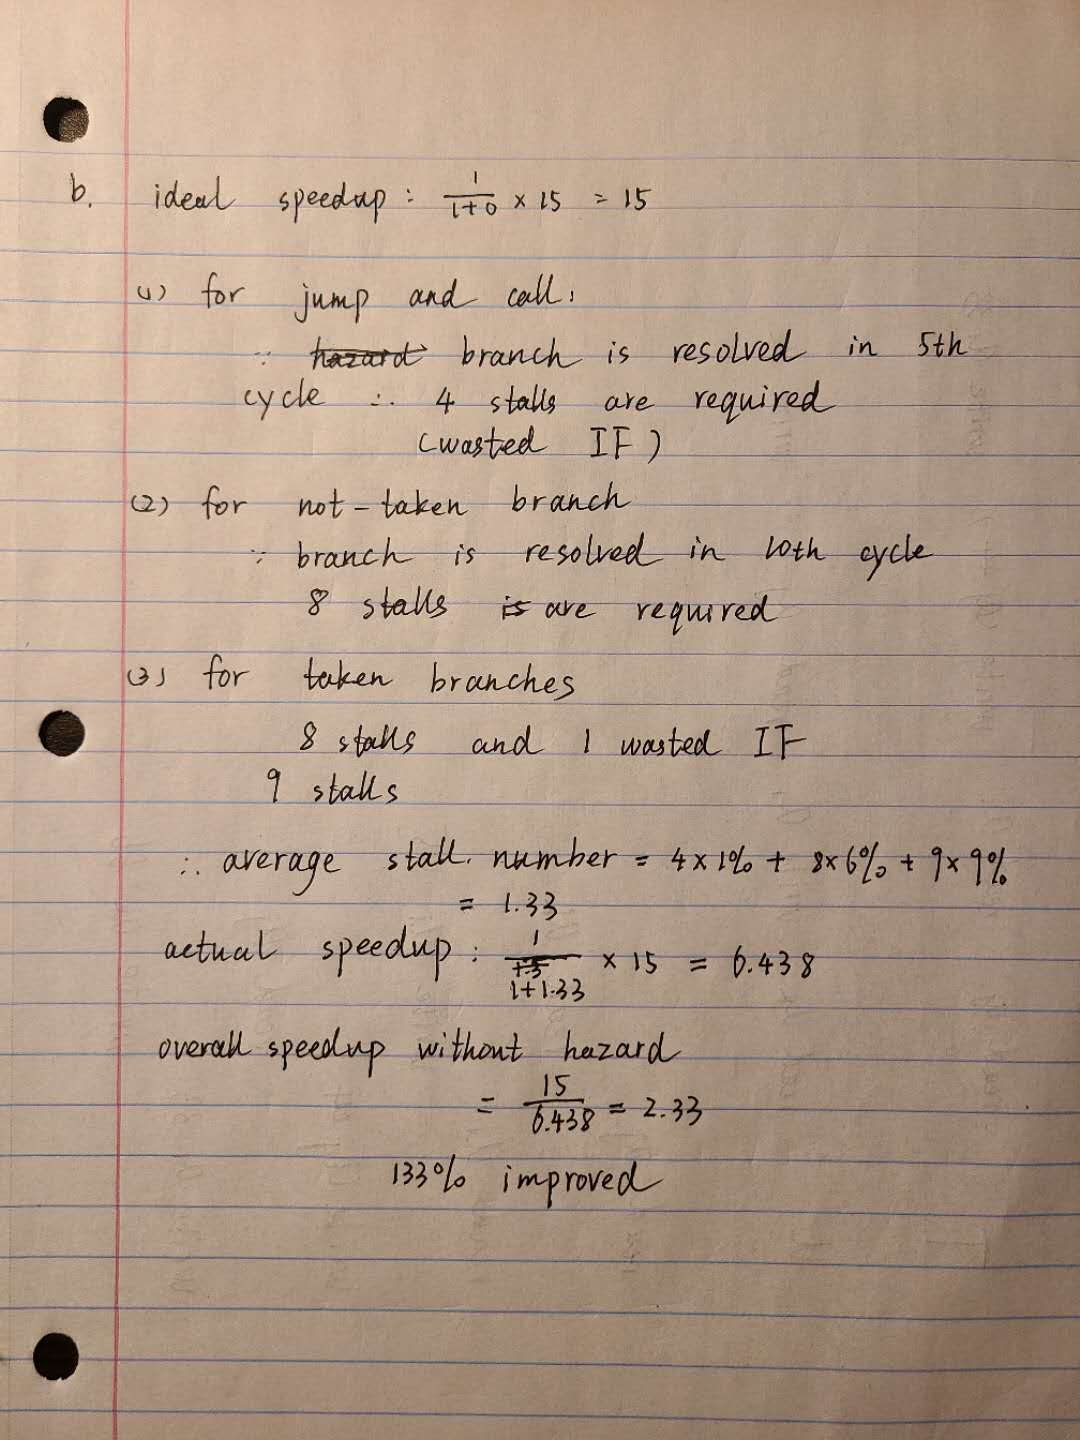 b. ideal speedup : 1/(1+0) × 15 = 15
(1) for jump and call:
∵ hazard branch is resolved in 5th
cycle ∴ 4 stalls are required
(wasted IF)
(2) for not-taken branch
∵ branch is resolved in 10th cycle
8 stalls is are required
(3) for taken branches
8 stalls and 1 wasted IF
9 stalls
∴ average stall. number = 4×1% + 8×6% + 9×9%
= 1.33
actual speedup : 1/(1+1.33) × 15 = 6.438
overall speedup without hazard
= 15/6.438 = 2.33
133% improved